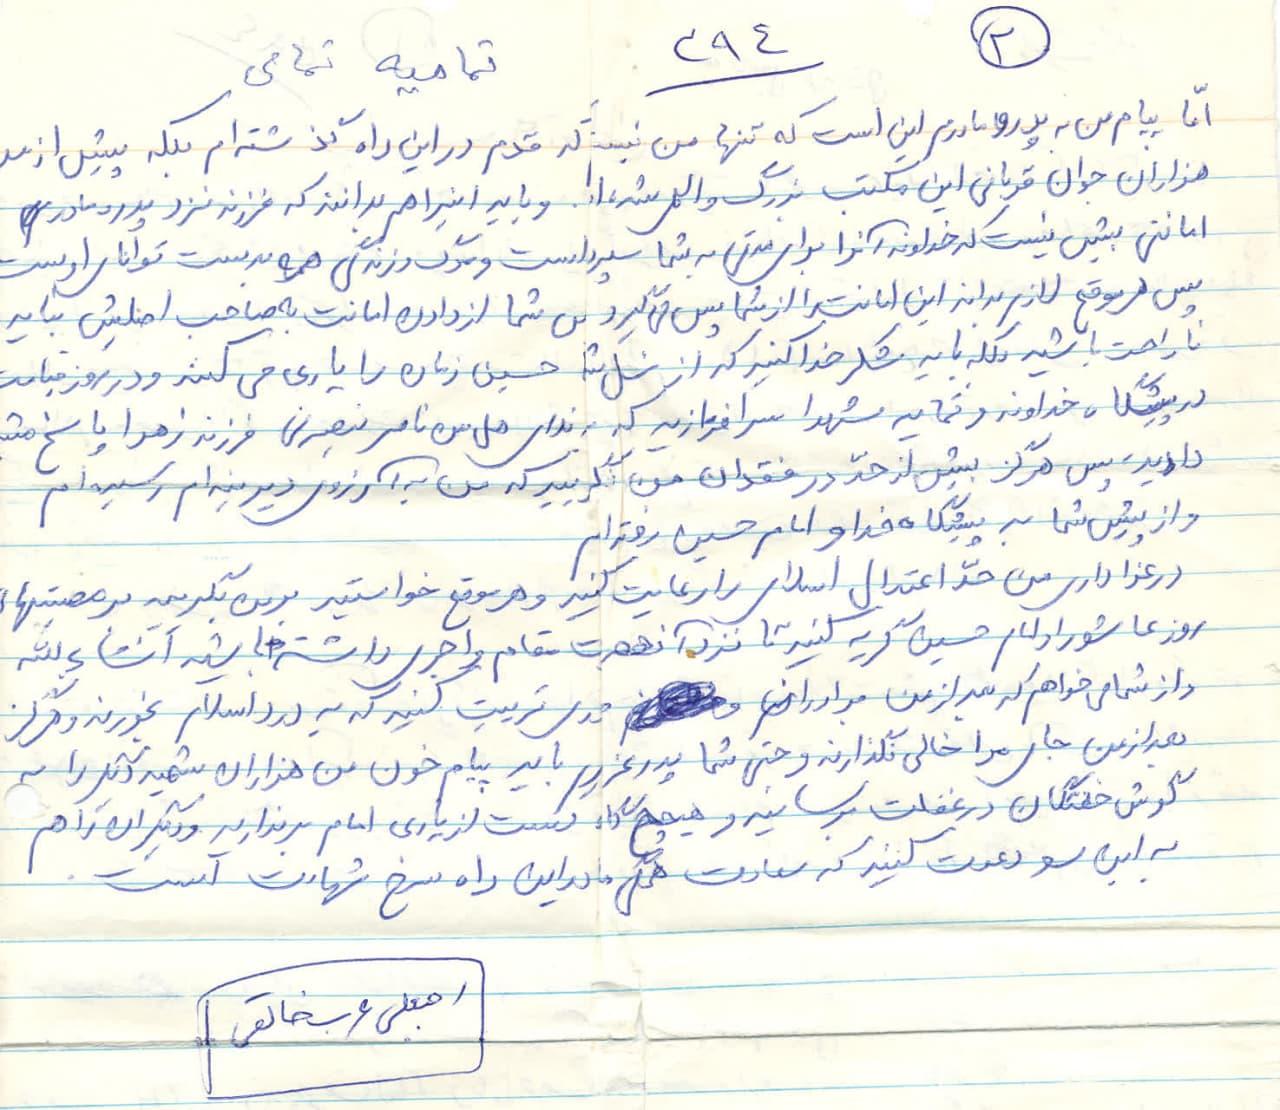 ۲
۲۹٤
تمامیه تمامی
امّا پیام من به پدر و مادرم این است که تنها من نیستم که قدم در این راه گذشته‌ام بلکه پیش از من
هزاران جوان قربانی این مکتب بزرگ و الهی شده‌اند. و باید اینرا هم بدانند که فرزند نزد پدر و مادرش
امانتی بیش نیست که خداوند آنرا برای مدتی به شما سپرداست و مرگ و زندگی همه بدست توانای اوست
پس هر موقع لازم بداند این امانت را از شما پس می‌گیرد پس شما از دادن امانت به صاحب اصلیش نباید
ناراحت باشید بلکه باید شکر خدا کنید که از نسل شما حسین زمان را یاری می کنند و در روز قیامت
در پیشگاه خداوند و تمامیه شهدا سرافرازید که به ندای هل من ناصر ینصرنی فرزند زهرا پاسخ مثبت
دادید، پس هرگز بیش از حدّ در فقدان من نگریید که من به آرزوی دیرینه‌ام رسیده‌ام
و از پیش شما به پیشگاه خدا و امام حسین رفته‌ام
در عزاداری من حدّ اعتدال اسلامی را رعایت کنید و هر موقع خواستید بر من بگریید بر مصیبتهای
روز عاشورا و امام حسین گریه کنید تا نزد آنحضرت مقام و اجری داشته باشید انشاءالله
و از شما می خواهم که بعد از من برادرانم طوری تربیت کنید که به درد اسلام بخورند و هرگز
بعد از من جای مرا خالی نگذارند و حتی شما پدر عزیزم باید پیام خون من هزاران شهید دیگر را به
گوش خفتگان در غفلت برسانید و هیچ گاه دست از یاری امام برندارید و دیگران را هم
به این سو دعوت کنید که سعادت همگی ما در این راه سرخ شهادت است.
رجبعلی عرب خالقی